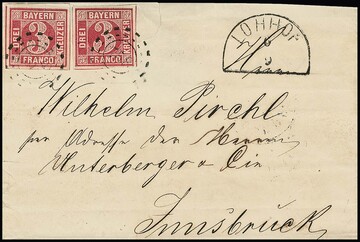 BAYERN BAYERN
DREI 3 KREUZER DREI 3 KREUZER
FRANCO FRANCO
LOHHOF
9
Herrn
Wilhelm Pirchl
per Adresse der Herren
Unterberger & Cie
Innsbruck